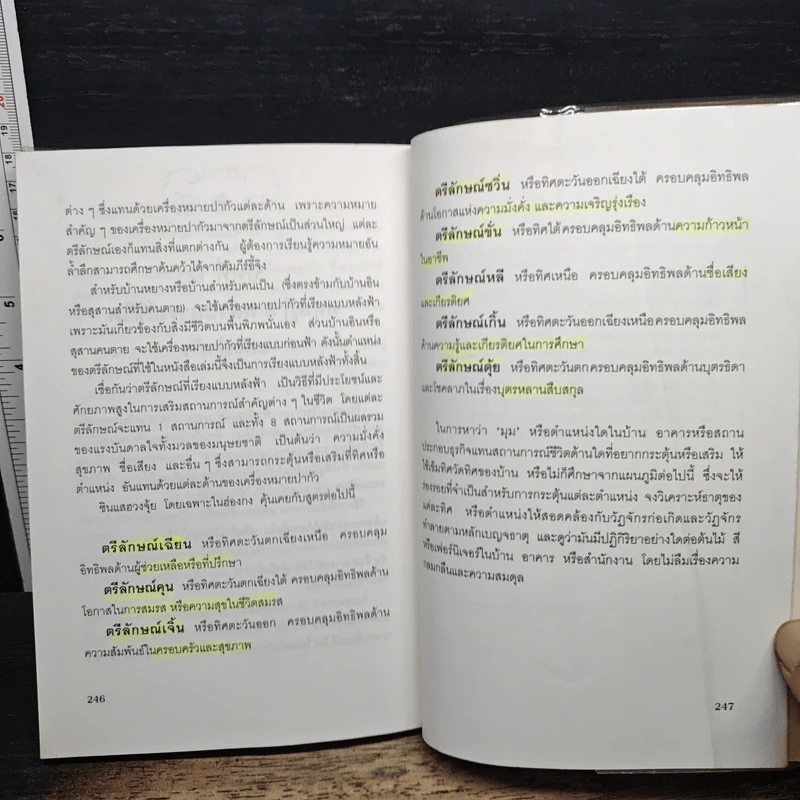 ต่าง ๆ ซึ่งแทนด้วยเครื่องหมายปากัวแต่ละด้าน เพราะความหมาย
สำคัญ ๆ ของเครื่องหมายปากัวมาจากตรีลักษณ์เป็นส่วนใหญ่ แต่ละ
ตรีลักษณ์เองก็แทนสิ่งที่แตกต่างกัน ผู้ต้องการเรียนรู้ความหมายอัน
ล้ำลึกสามารถศึกษาค้นคว้าได้จากคัมภีร์อี้จิง
สำหรับบ้านหยางหรือบ้านสำหรับคนเป็น (ซึ่งตรงข้ามกับบ้านอิน
หรือสุสานสำหรับคนตาย) จะใช้เครื่องหมายปากัวที่เรียงแบบหลังฟ้า
เพราะมันเกี่ยวข้องกับสิ่งมีชีวิตบนพื้นพิภพนั่นเอง ส่วนบ้านอินหรือ
สุสานคนตาย จะใช้เครื่องหมายปากัวที่เรียงแบบก่อนฟ้า ดังนั้นตำแหน่ง
ของตรีลักษณ์ที่ใช้ในหนังสือเล่มนี้จึงเป็นการเรียงแบบหลังฟ้าทั้งสิ้น
เชื่อกันว่าตรีลักษณ์ที่เรียงแบบหลังฟ้า เป็นวิธีที่มีประโยชน์และ
ศักยภาพสูงในการเสริมสถานการณ์สำคัญต่าง ๆ ในชีวิต โดยแต่ละ
ตรีลักษณ์จะแทน 1 สถานการณ์ และทั้ง 8 สถานการณ์เป็นผลรวม
ของแรงบันดาลใจทั้งมวลของมนุษยชาติ เป็นต้นว่า ความมั่งคั่ง
สุขภาพ ชื่อเสียง และอื่น ๆ ซึ่งสามารถกระตุ้นหรือเสริมที่ทิศหรือ
ตำแหน่ง อันแทนด้วยแต่ละด้านของเครื่องหมายปากัว
ซินแสฮวงจุ้ย โดยเฉพาะในฮ่องกง คุ้นเคยกับสูตรต่อไปนี้
ตรีลักษณ์เฉียน หรือทิศตะวันตกเฉียงเหนือ ครอบคลุม
อิทธิพลด้านผู้ช่วยเหลือหรือที่ปรึกษา
ตรีลักษณ์คุน หรือทิศตะวันตกเฉียงใต้ ครอบคลุมอิทธิพลด้าน
โอกาสในการสมรส หรือความสุขในชีวิตสมรส
ตรีลักษณ์เจิ้น หรือทิศตะวันออก ครอบคลุมอิทธิพลด้าน
ความสัมพันธ์ในครอบครัวและสุขภาพ
246
ตรีลักษณ์ซวิ่น หรือทิศตะวันออกเฉียงใต้ ครอบคลุมอิทธิพล
ด้านโอกาสแห่งความมั่งคั่ง และความเจริญรุ่งเรือง
ตรีลักษณ์ขั่น หรือทิศใต้ ครอบคลุมอิทธิพลด้านความก้าวหน้า
ในอาชีพ
ตรีลักษณ์หลี หรือทิศเหนือ ครอบคลุมอิทธิพลด้านชื่อเสียง
และเกียรติยศ
ตรีลักษณ์เกิ้น หรือทิศตะวันออกเฉียงเหนือ ครอบคลุมอิทธิพล
ด้านความรู้และเกียรติยศในการศึกษา
ตรีลักษณ์ตุ้ย หรือทิศตะวันตก ครอบคลุมอิทธิพลด้านบุตรธิดา
และโชคลาภในเรื่องบุตรหลานสืบสกุล
ในการหาว่า 'มุม' หรือตำแหน่งใดในบ้าน อาคารหรือสถาน
ประกอบธุรกิจแทนสถานการณ์ชีวิตด้านใดที่อยากกระตุ้นหรือเสริม ให้
ใช้เข็มทิศวัดทิศของบ้าน หรือไม่ก็ศึกษาจากแผนภูมิต่อไปนี้ ซึ่งจะให้
ร่องรอยที่จำเป็นสำหรับการกระตุ้นแต่ละตำแหน่ง จงวิเคราะห์ธาตุของ
แต่ละทิศ หรือตำแหน่งให้สอดคล้องกับวัฏจักรก่อเกิดและวัฏจักร
ทำลายตามหลักเบญจธาตุ และดูว่ามันมีปฏิกิริยาอย่างใดต่อต้นไม้ สี
หรือเฟอร์นิเจอร์ในบ้าน อาคาร หรือสำนักงาน โดยไม่ลืมเรื่องความ
กลมกลืนและความสมดุล
247